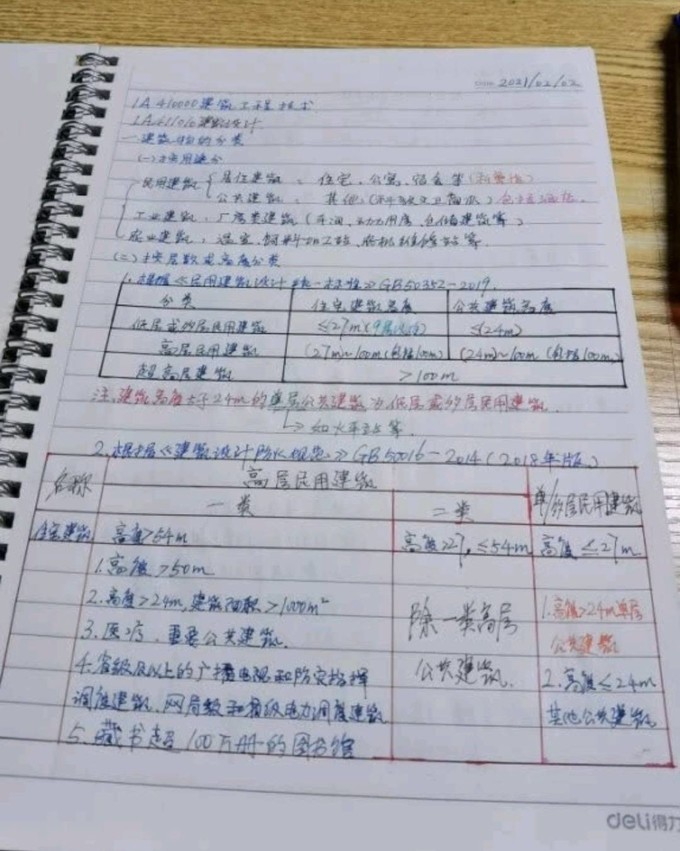 2021/02/02
1A410000建筑工程技术
1A411010建筑设计
一.建筑物的分类
(一)按用途分
民用建筑 居住建筑：住宅、公寓、宿舍等
公共建筑：其他
工业建筑：厂房类建筑(车间、动力用房、仓储建筑等)
农业建筑：温室、饲料加工站、等
(二)按层数或高度分类
1.根据《民用建筑设计统一标准》GB50352-2019.
分类 住宅建筑高度 公共建筑高度
低层或多层民用建筑 ≤27m ≤(24m)
高层民用建筑 (27m)~100m(包括100m) (24m)~100m(包括100m)
超高层建筑 >100m
注:建筑高度大于24m的单层公共建筑为低层或多层民用建筑.
→如火车站等.
2.根据《建筑设计防火规范》GB50016-2014(2018年版)
名称 高层民用建筑 单/多层民用建筑
一类 二类
住宅建筑 高度>54m 高度>27,≤54m 高度≤27m
1.高度>50m
2.高度>24m,建筑面积>1000m² 除一类高层 1.高度>24m单层
3.医疗、重要公共建筑. 公共建筑. 公共建筑
4.省级及以上的广播电视和防灾指挥 2.高度≤24m
调度建筑、网局级和省级电力调度建筑 其他公共建筑
5.藏书超100万册的图书馆
deli得力